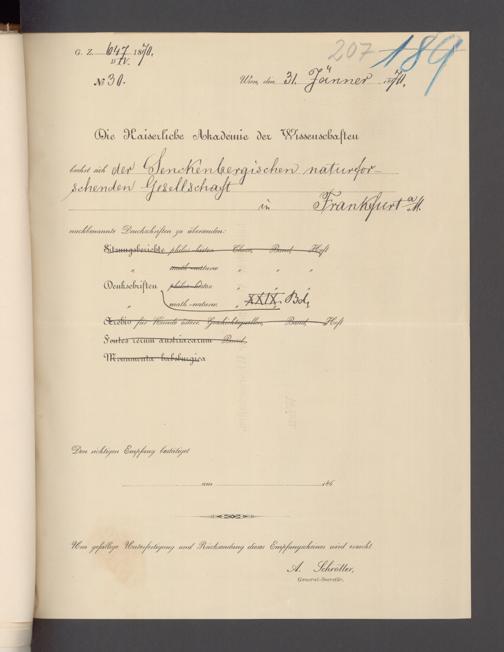 207 189
G. Z. 647 1870.
IV.
№ 30. Wien, den 31. Jänner 1870.
Die Kaiserliche Akademie der Wissenschaften
beehrt sich der Senckenbergischen naturfor-
schenden Gesellschaft
in Frankfurt a. M.
nachbenannte Druckschriften zu übersenden:
Sitzungsberichte philos.-histor. Classe, Band Heft
„ math.-naturw. „ „ „
Denkschriften philos.-histor. „
„ math.-naturw. „ XXIX. Bd.
Archiv für Kunde österr. Geschichtsquellen, Band, Heft
Fontes rerum austriacarum Band,
Monumenta habsburgica
Den richtigen Empfang bestätiget
am 186
Um gefällige Unterfertigung und Rücksendung dieses Empfangscheines wird ersucht
A. Schrötter,
General-Secretär.